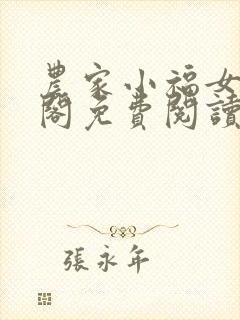 農家小福女
閣免費閱讀
張永年